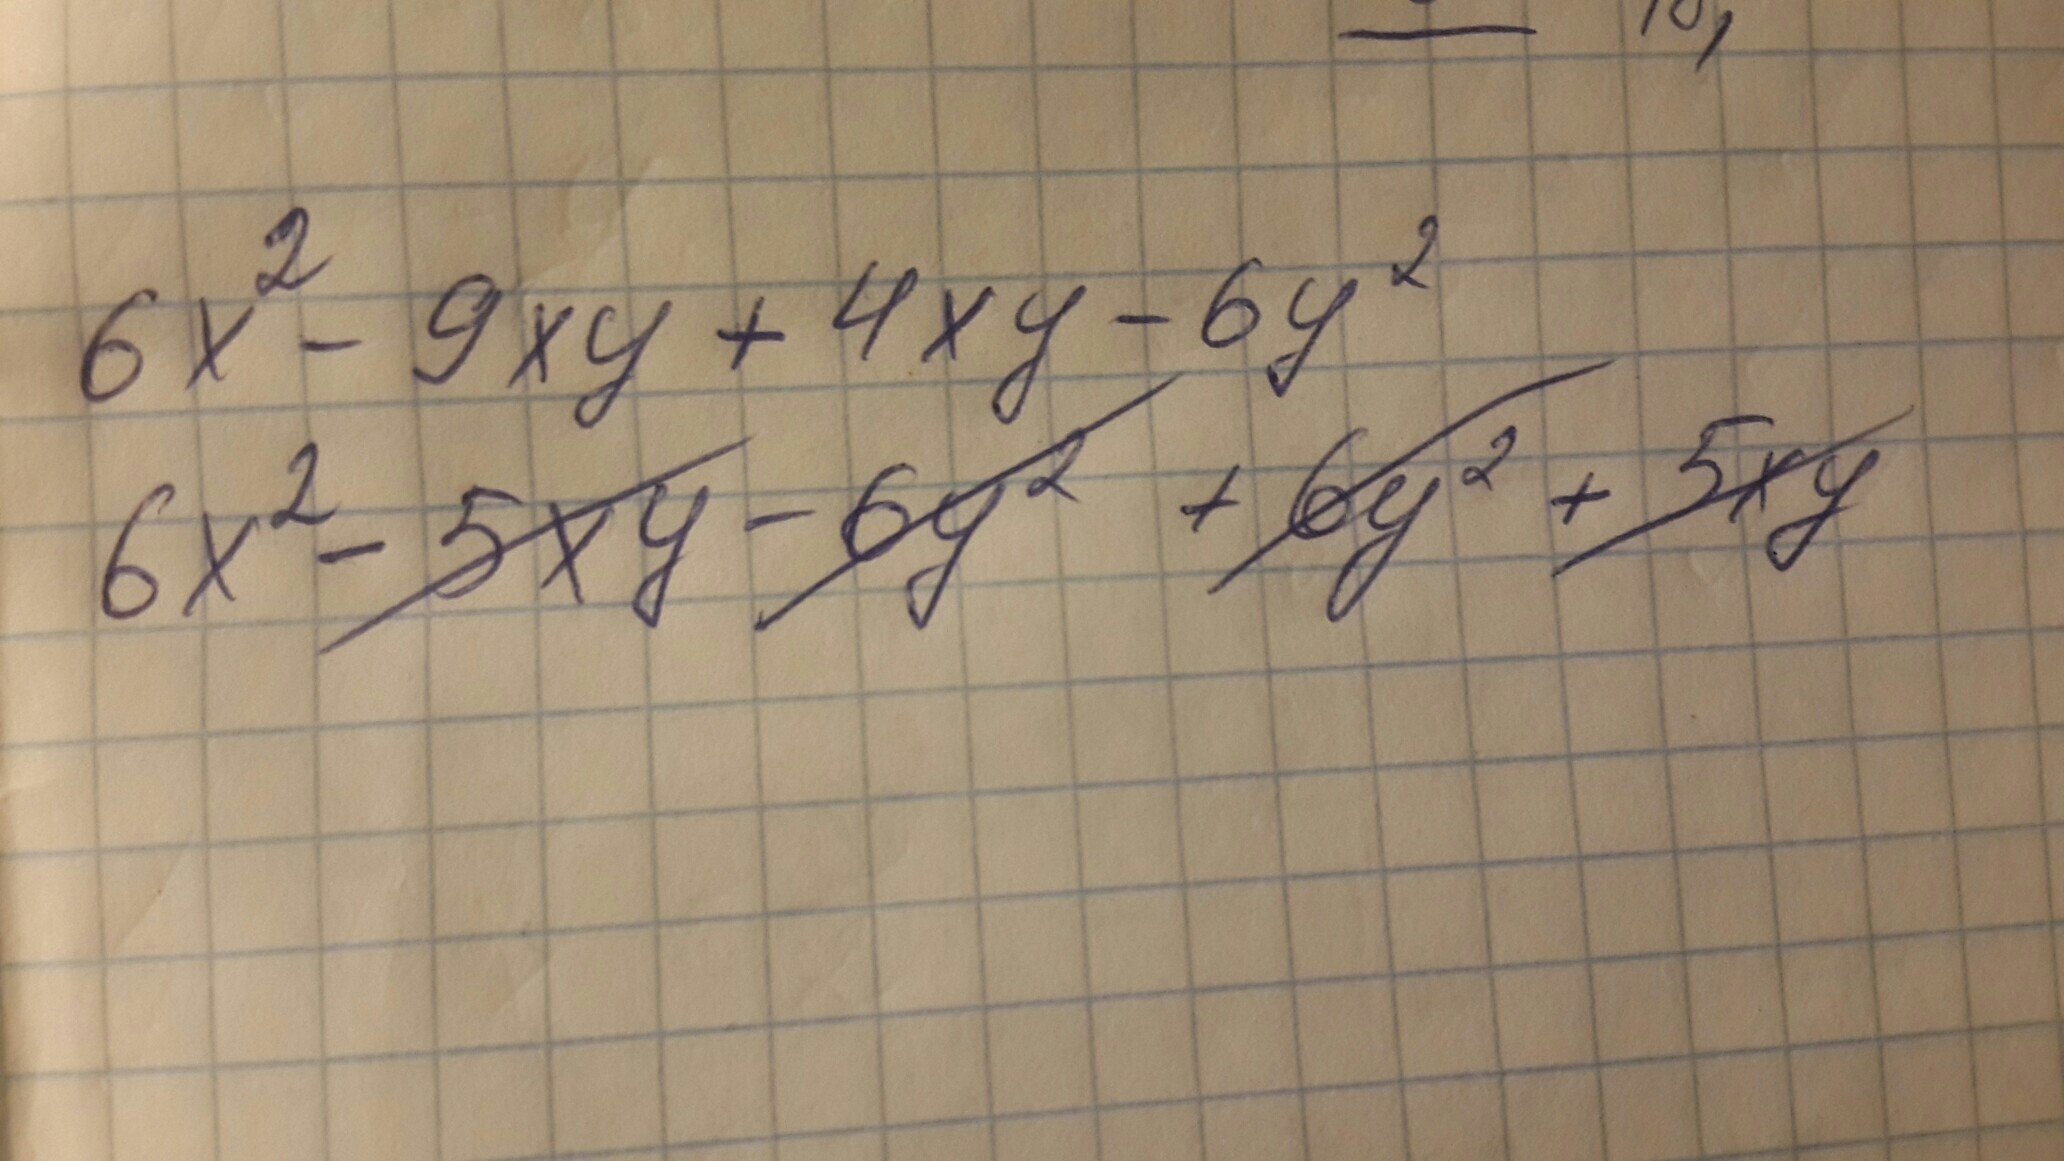 6x² - 9xy + 4xy - 6y²
6x² - 5xy - 6y² + 6y² + 5xy